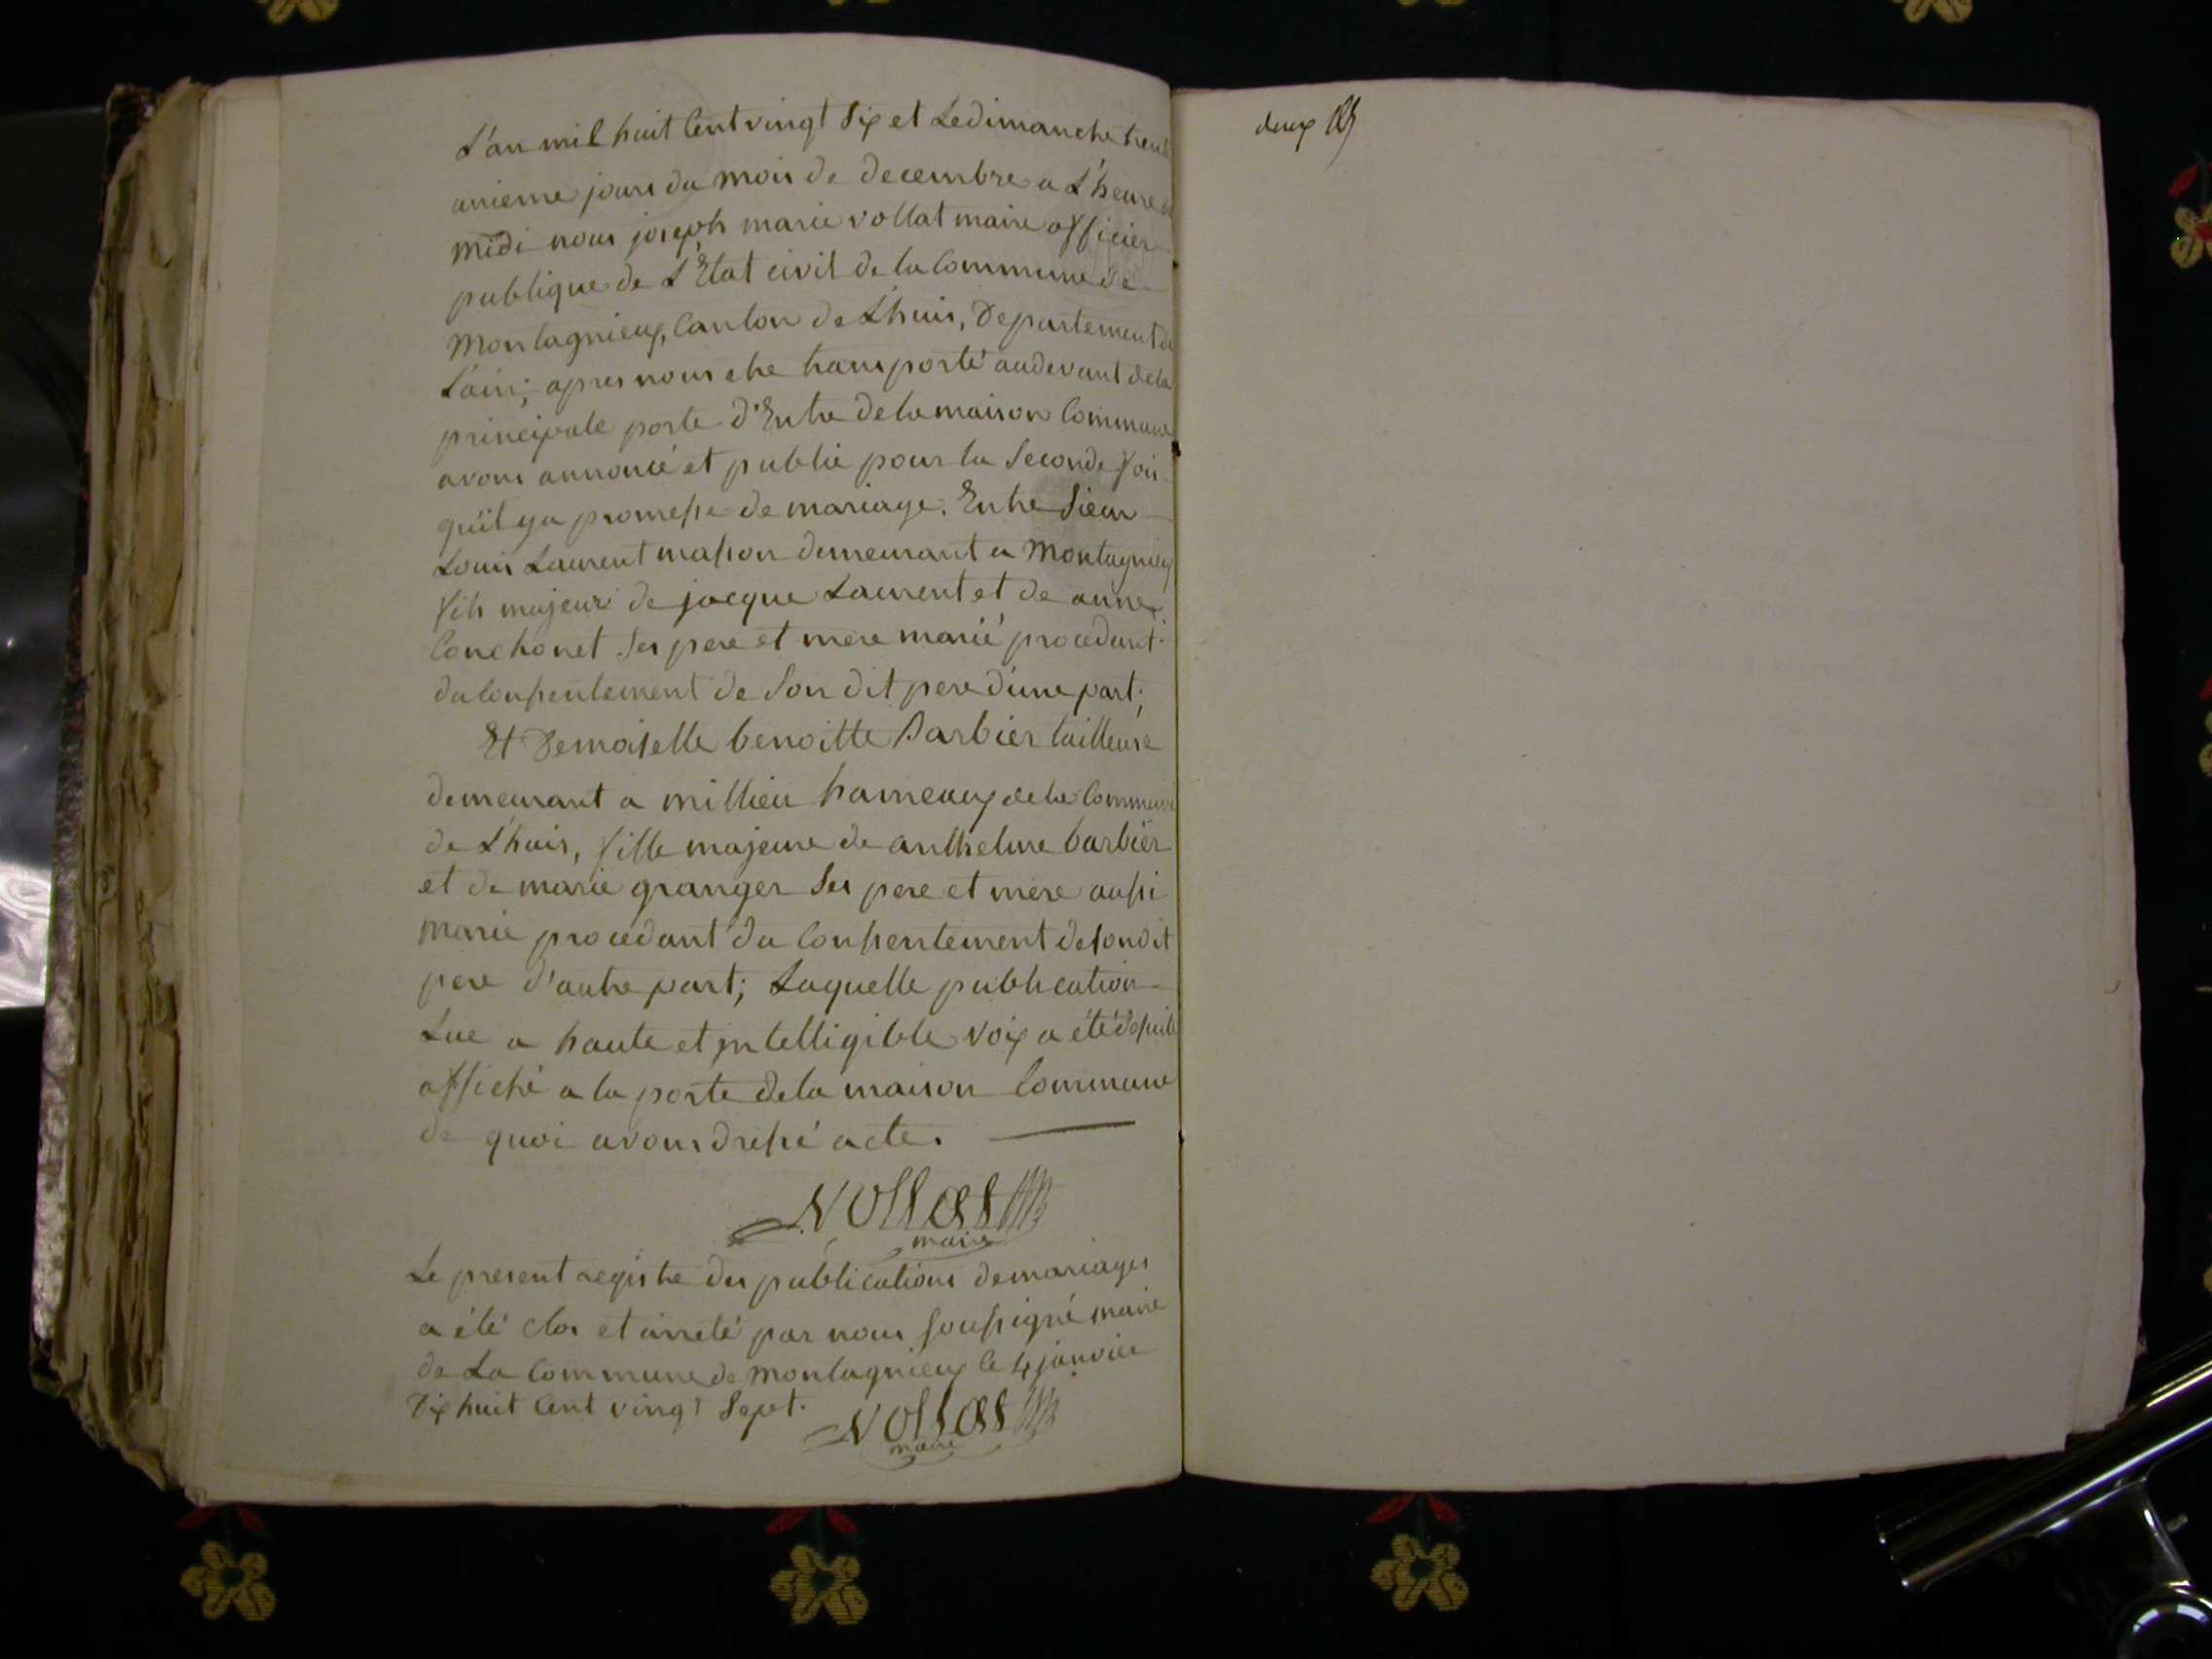 L'an mil huit Cent vingt Six et Le dimanche trente
unieme jours du mois de decembre a L'heure de
midi nous joseph marie vollat maire officier
publique de L'Etat civil de la Commune de
Montagnieux, Canton de Lhuis, Departement de
L'ain; apres nous etre transporté au devant de la
principale porte d'Entre de la maison Commune
avons annoncé et publié pour la Seconde fois
qu'il y a promesse de mariage. Entre Sieur
Louis Laurent masson demeurant a Montagnieux
fils majeur de jacque Laurent et de anne
Conchonet Ses pere et mere marié procedant
du Consentement de Son dit pere d'une part;
Et Demoiselle benoitte Barbier tailleuse
demeurant a millieu hameaux de la Commune
de Lhuis, fille majeure de anthelme barbier
et de marie granger Ses pere et mere aussi
marie procedant du Consentement de son dit
pere d'autre part; Laquelle publication
Lue a haute et jntelligible voix a été de suite
affiché a la porte de la maison Commune
de quoi avons dressé acte.
Vollat
maire
Le present registre des publications de mariages
a été clos et arreté par nous soussigné maire
de La Commune de montagnieux le 4 janvier
Dix huit Cent vingt Sept.
Vollat
maire
deux